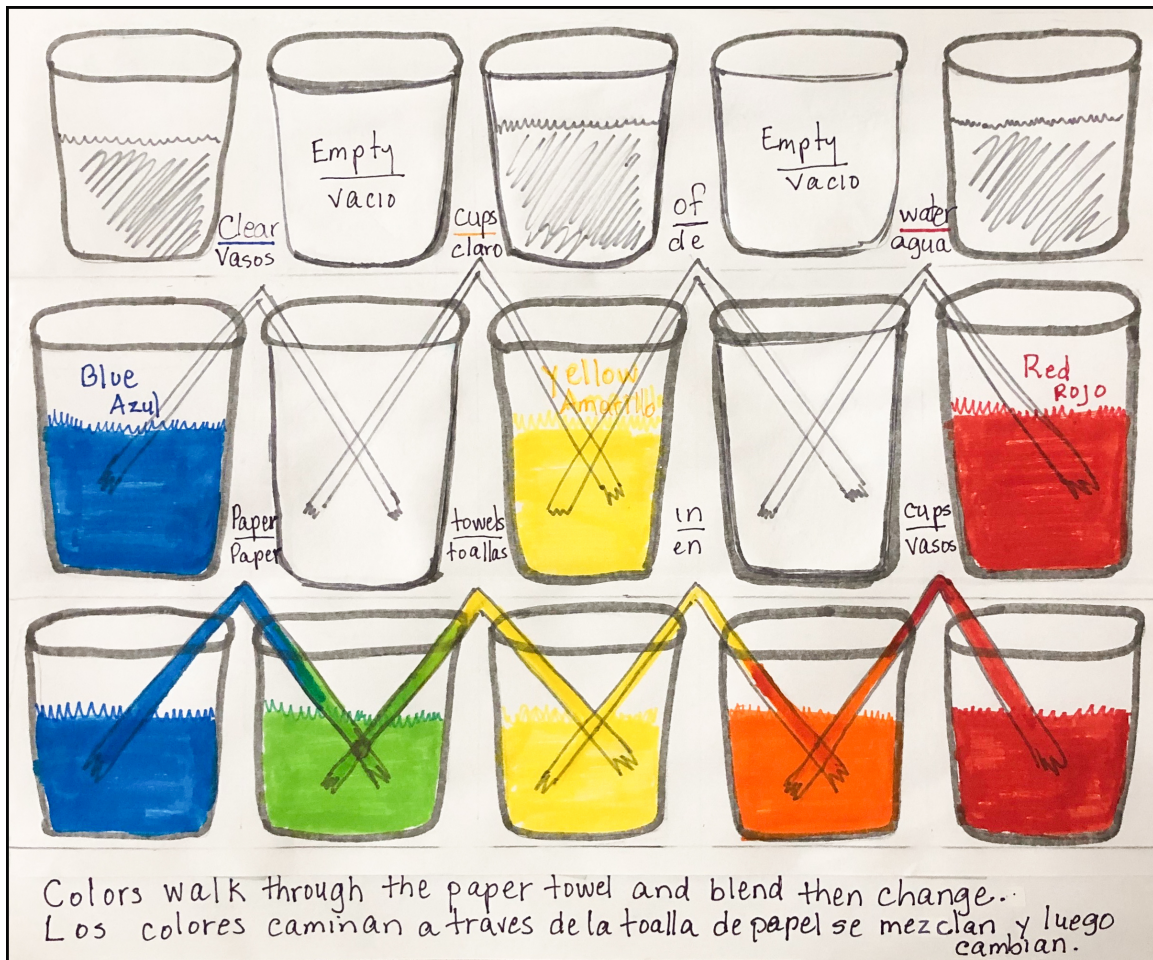 Empty
vacio
Empty
vacio
Clear
Vasos
cups
claro
of
de
water
agua
Blue
Azul
Yellow
Amarillo
Red
Rojo
Paper
Paper
towels
toallas
in
en
cups
vasos
Colors walk through the paper towel and blend then change..
Los colores caminan a traves de la toalla de papel se mezclan y luego
cambian.